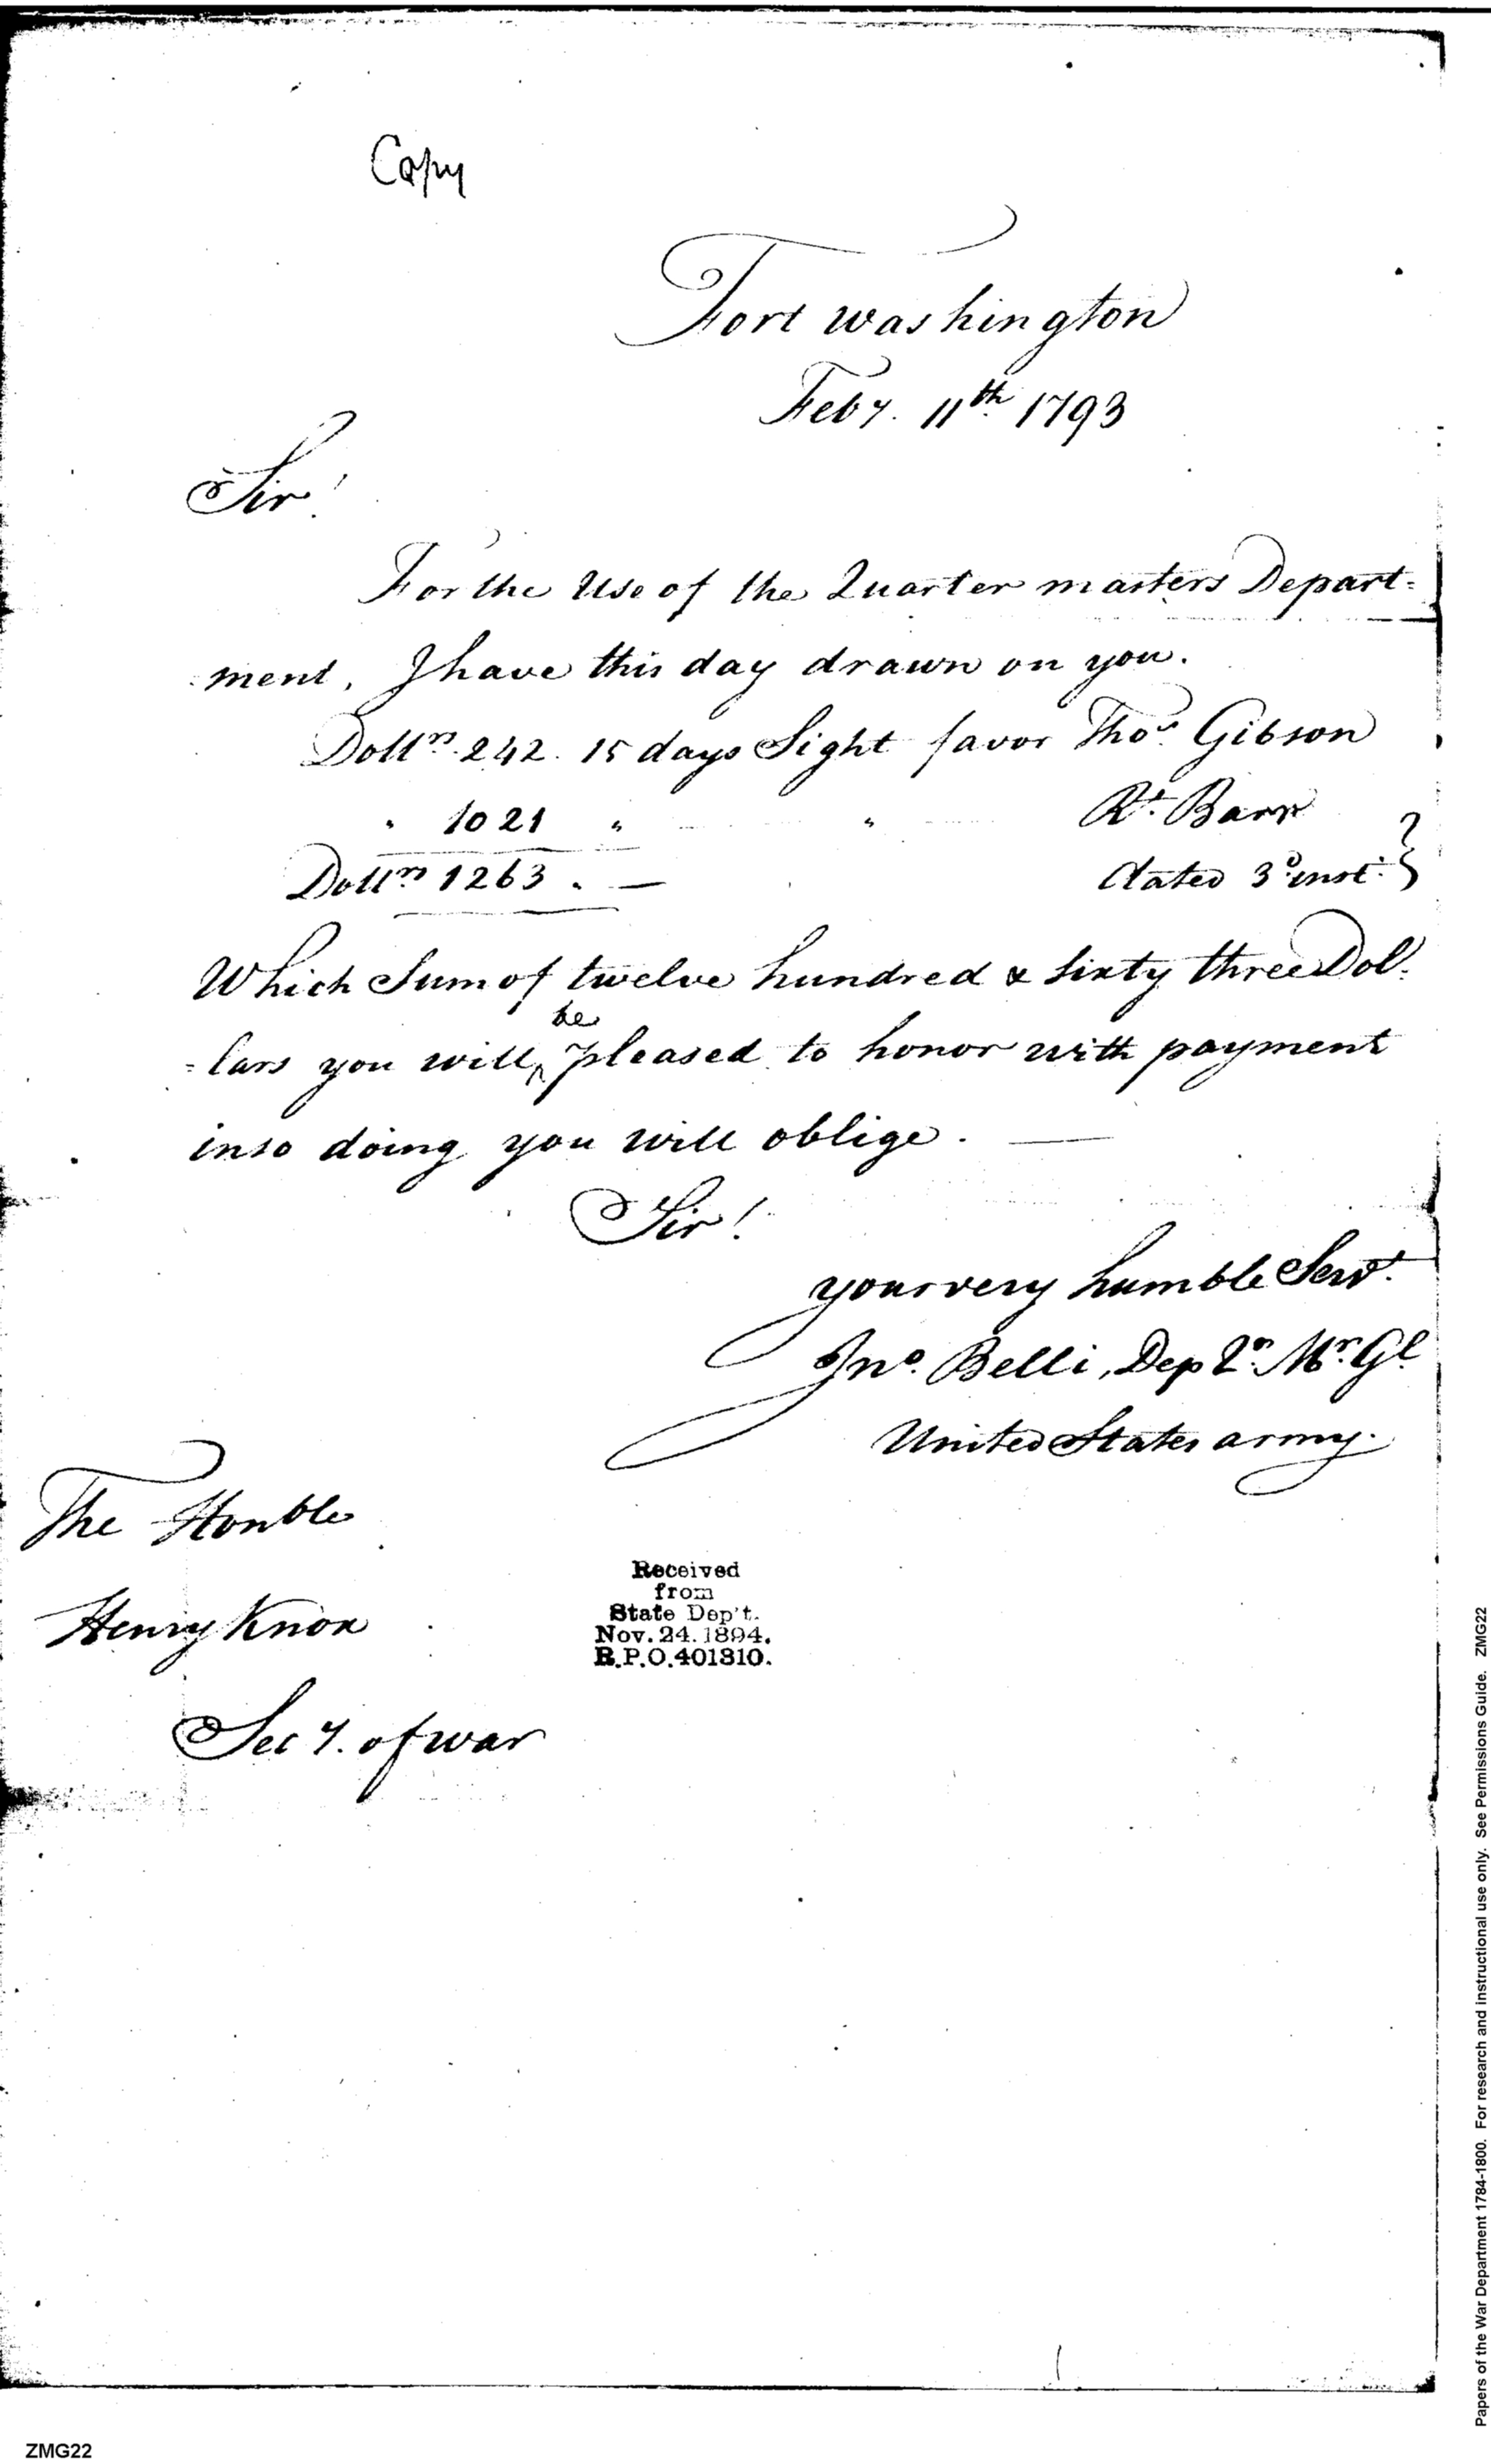 Copy
Fort washington
Feby. 11th 1793
Sir!
For the Use of the Quarter masters Depart=
ment, I have this day drawn on you.
Dollrs. 242. 15 days Sight favor Thos. Gibson
" 1021 " " Rt. Barr
Dollrs 1263. — dated 3d inst. }
Which Sum of twelve hundred & sixty three Dol=
=lars you will be pleased to honor with payment
in so doing you will oblige. —
Sir!
your very humble Servt.
Jno. Belli, Dep Qr. Mr. Gl
United States army.
The Honble
Henry Knox
Secy. of war
Received
from
State Dep't.
Nov. 24. 1894.
R.P.O. 401310.
Papers of the War Department 1784-1800. For research and instructional use only. See Permissions Guide. ZMG22
ZMG22